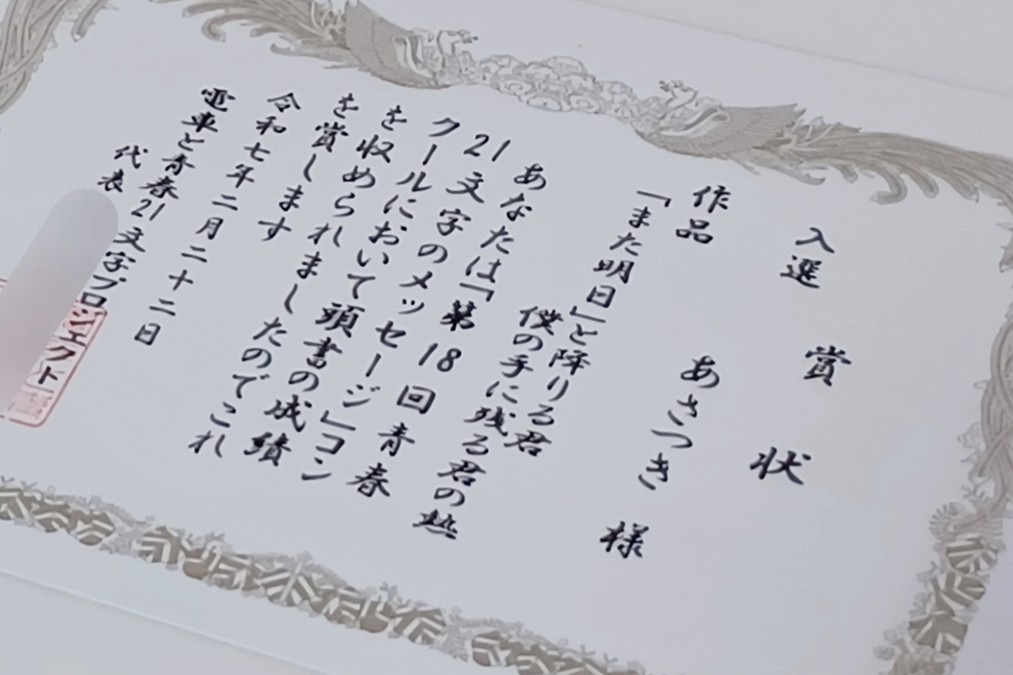 入選 賞状
あさつき 様
作品
「また明日」と降りる君
僕の手に残る君の熱
あなたは「第18回青春
21文字のメッセージ」コン
クールにおいて頭書の成績
を収められましたのでこれ
を賞します
令和七年二月二十二日
電車と青春21文字プロジェクト
代表